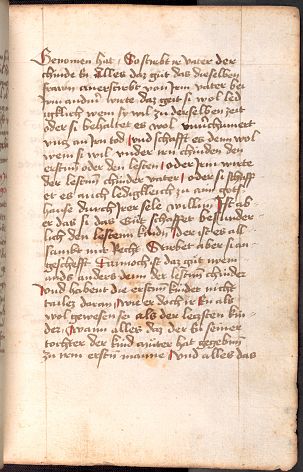 Genomen hat / So stirbt ir vater der
chinde Ein Alles daz gut das dieselben
frawn anerstirbt von irm vater bei
irm andern wirte daz geit si wol led
igklich wem si wil zu derselben zeit
oder si behaltet es wol unverchumert
uncz an irn tod / und schafft es denn wol
wem si wil under irn chinden den
ersten oder den lesten / oder irm wirte
der lesten chinder vater / oder si schaff
et es auch ledigkleich zu aim gots
hause durch irer sele willen / Ist ab
er daz si das gut schaffet besunder
lich den lesten kinden / der ist es all
sambt mit Recht Stirbet aber si an
geschefft / Dannoch ist daz gut niem
ands anders denn der lesten chinder
und habent die ersten kinder nicht
tailes daran / wie er doch ir En als
wol gewesen sei als der leczsten kin
der / Wann alles daz der En seiner
tochter der kind muter hat gegeben
zu irm ersten manne / und alles das